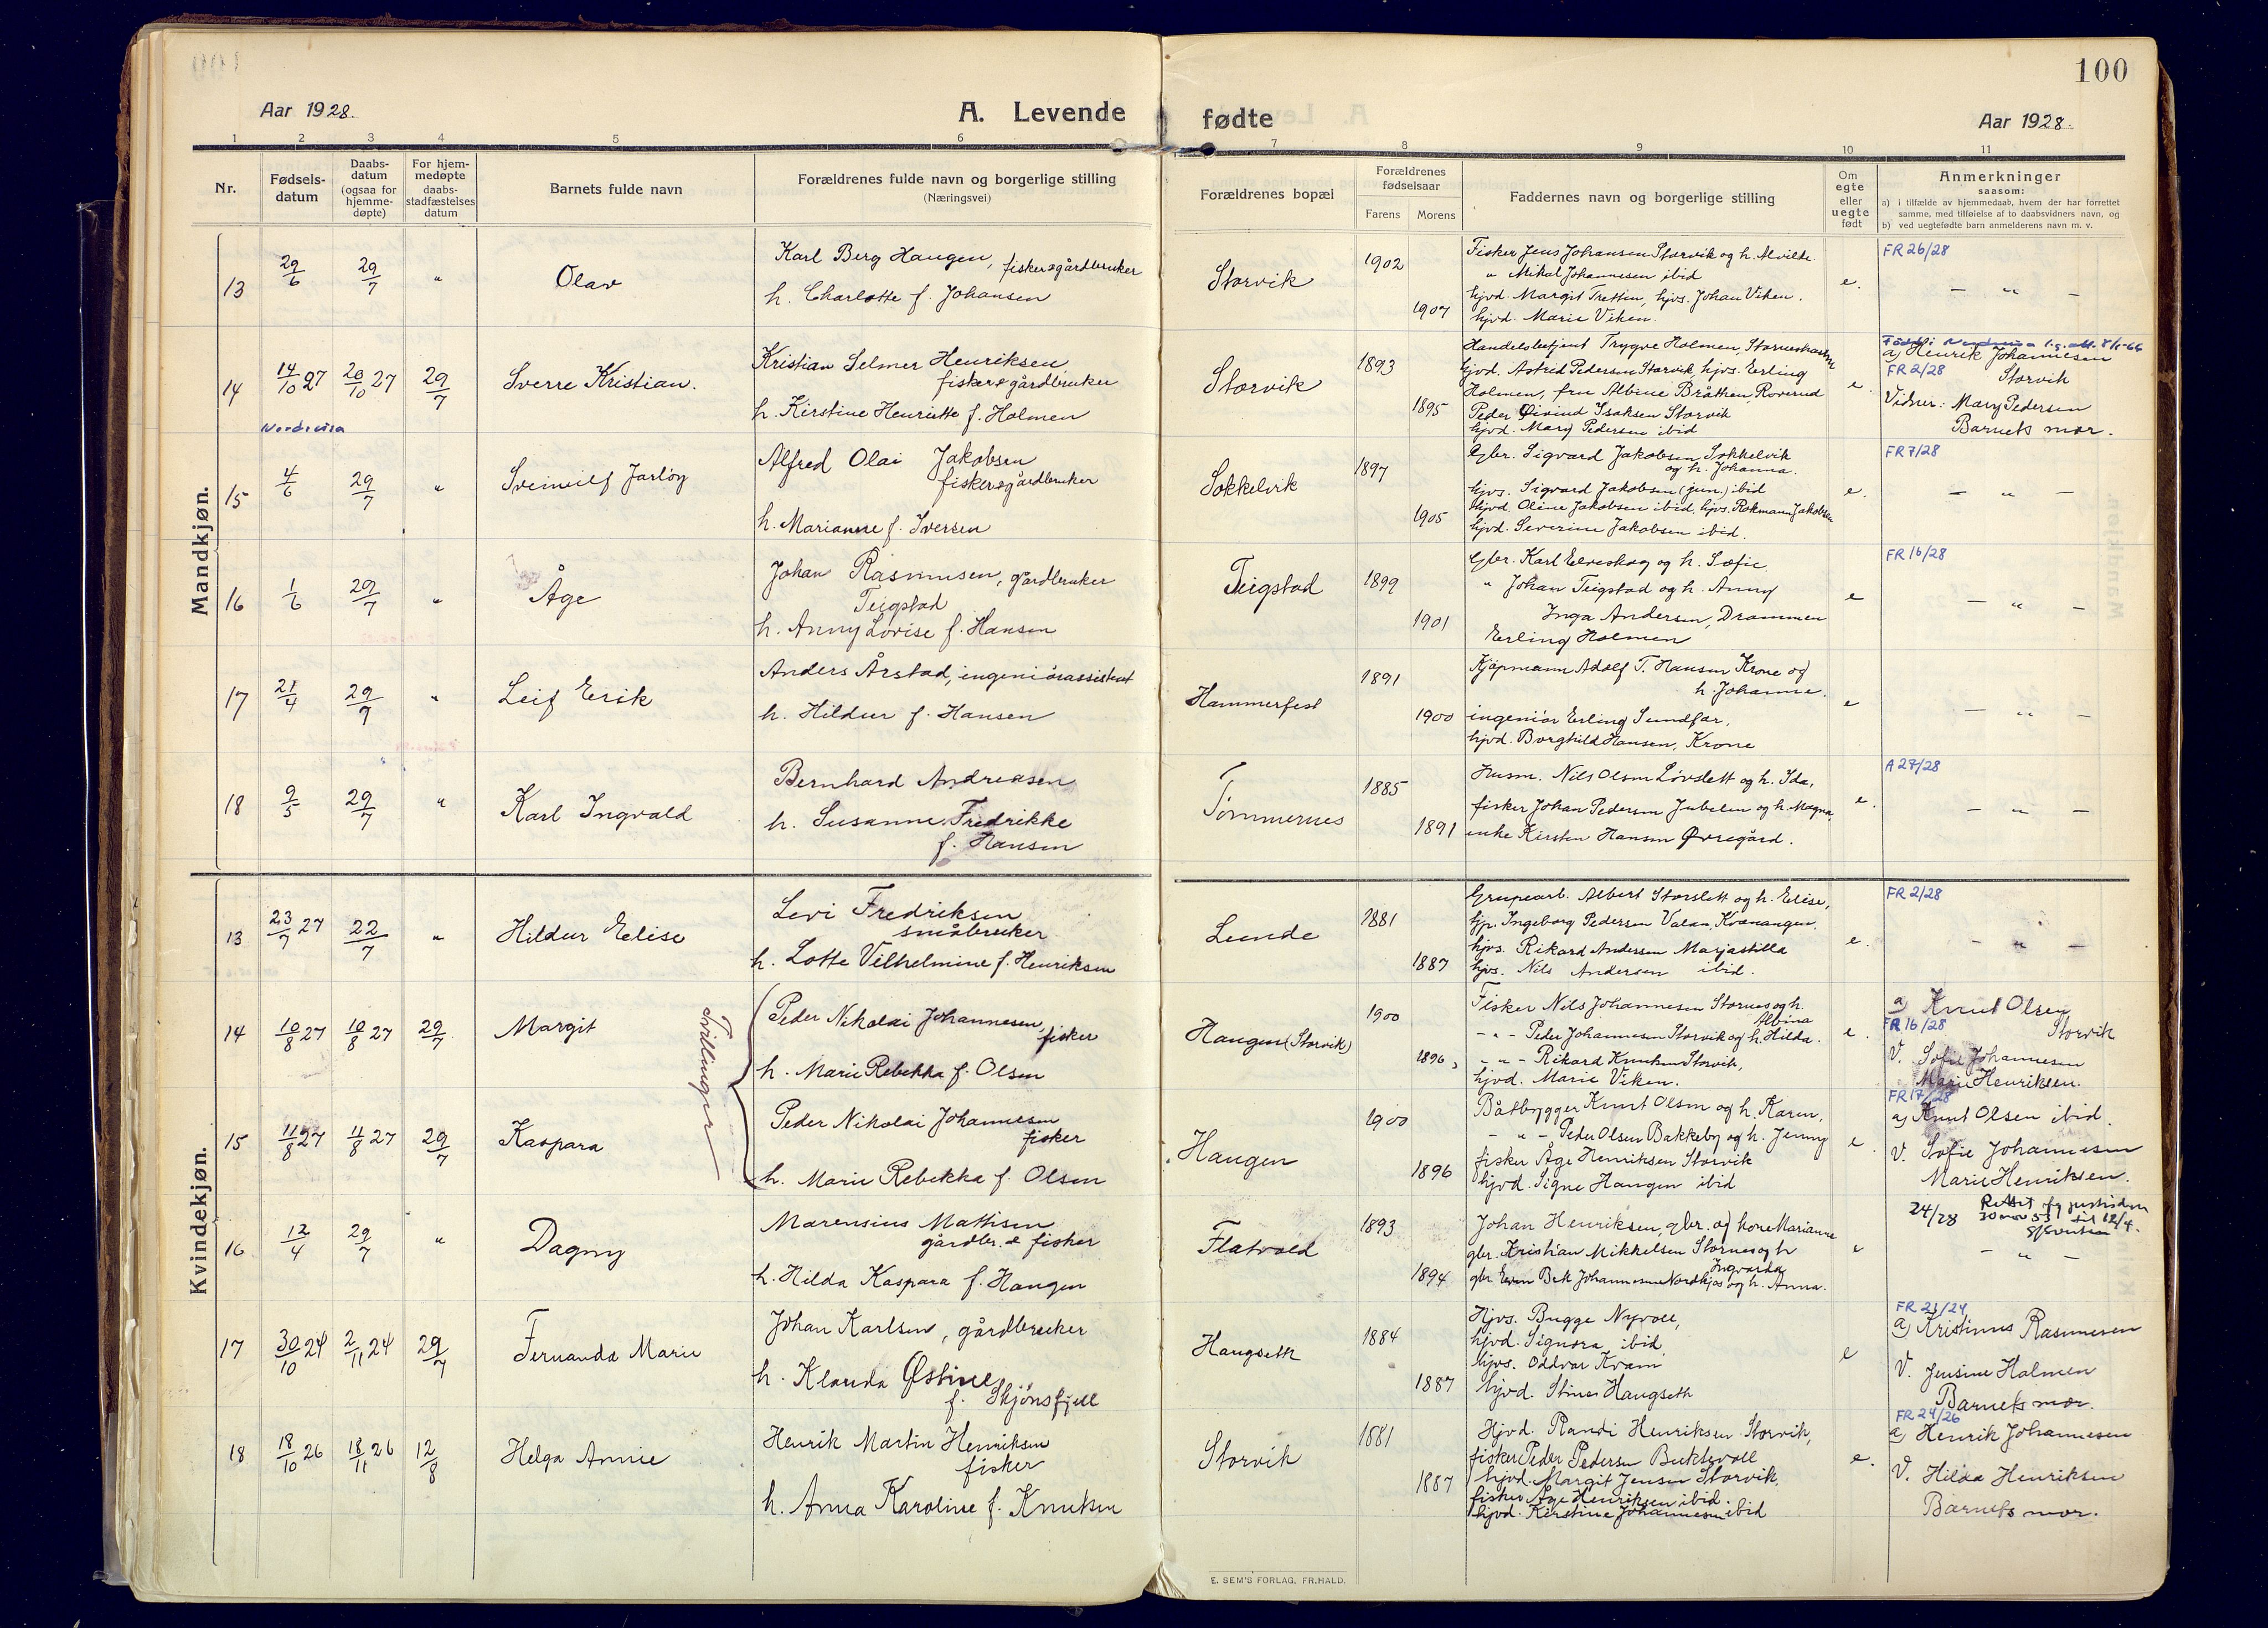 100
Aar 1928.
A. Levende
fødte
Aar 1928.
1 2 3 4 5 6 7 8 9 10 11
Nr.
Fødsels-
datum
Daabs-
datum
(ogsaa for
hjemme-
døpte)
For hjem-
medøpte
daabs-
stadfæstelses
datum
Barnets fulde navn
Forældrenes fulde navn og borgerlige stilling
(Næringsvei)
Forældrenes bopæl
Forældrenes
fødselsaar
Farens Morens
Faddernes navn og borgerlige stilling
Om
egte
eller
uegte
født
Anmerkninger
saasom:
a) i tilfælde av hjemmedaab, hvem der har forrettet
samme, med tilføielse af to daabsvidners navn, og
b) ved uegtefødte barn anmelderens navn m. v.
Mandkjøn.
13 29/6 29/7 " Olav
Karl Berg Haugen, fisker & gårdbruker
h. Charlotte f. Johansen
Storvik 1902 1907
Fisker Jens Johansen Storvik og h. Alvilde.
" Mikal Johannesen ibid
hjvd. Margit Trettin, hjvs. Johan Viken.
hjvd. Marie Viken.
e.
FR 26/28
— " —
14 14/10 27 20/10 27 29/7 Sverre Kristian.
Nordreisa
Kristian Selmer Henriksen
fisker & gårdbruker
h. Kirstine Henriette f. Holmen
Storvik 1893 1895
Handelsbetjent Trygve Holmen,
hjvd. Astrid Pedersen Storvik, hjvs. Erling
Holmen, fru Albine Bråthen, Roverud
Peder Øivind Isaksen Storvik
hjvd. Mary Pedersen ibid
e.
Født i Nordreisa
a) Henrik Johannesen
FR 2/28 Storvik
Vidner: Mary Pedersen
Barnets mor.
15 4/6 29/7 " Sveinulf Jarløg
Alfred Olai Jakobsen
fisker & gårdbruker
h. Marianne f. Iversen
Sokkelvik 1897 1905
Gbr. Sigvard Jakobsen Sokkelvik
og h. Johanna.
hjvs. Sigvard Jakobsen (jun.) ibid
hjvd. Oline Jakobsen ibid, hjvs. Rokmann Jakobsen
hjvd. Severine Jakobsen ibid.
e.
FR 7/28
— " —
16 1/6 29/7 " Åge
Johan Rasmusen, gårdbruker
Teigstad
h. Anny Lovise f. Hansen
Teigstad 1899 1901
Gbr. Karl Elveskog og h. Sofie
" Johan Teigstad og h. Anny
Inga Andersen, Drammen
Erling Holmen
e
FR 16/28
— " —
17 21/4 29/7 " Leif Erik
Anders Årstad, ingeniørassistent
h. Hildur f. Hansen
Hammerfest 1891 1900
Kjøpmann Adolf T. Hansen Krone og
h. Johanne.
ingeniør Erling Sundfær,
hjvd. Borghild Hansen, Krone
e
— " —
18 9/5 29/7 " Karl Ingvald
Bernhard Andreasen
h. Susanne Fredrikke
f. Hansen
Tømmernes 1885 1891
Husm. Nils Olsen Løvslett og h. Ida,
fisker Johan Pedersen Jubelen og h. Magna,
enke Kirsten Hansen Øvregård.
e.
A 27/28
— " —
Kvindekjøn.
13 23/7 27 22/7 " Hildur Elise
Levi Fredriksen
småbruker
h. Lotte Vilhelmine f. Henriksen
Lunde 1881 1887
Grupearb. Albert Storslett og h. Elise,
hjp. Ingeborg Pedersen Valan, Kvænangen.
hjvs. Rikard Andersen Marjastilla
hjvs. Nils Andersen ibid.
e.
FR 2/28
— " —
14 10/8 27 10/8 27 29/7 Margit
Tvillinger
Peder Nikolai Johannesen,
fisker
h. Marie Rebekka f. Olsen
Haugen (Storvik) 1900 1896
Fisker Nils Johannesen Stornes og h.
Albina
- " - Peder Johannesen Storvik og h. Hilda.
- " - Rikard Knutsen Storvik,
hjvd. Marie Viken.
e.
a) Knut Olsen
FR 16/28 Storvik
V. Sofie Johannesen
Marie Henriksen.
15 11/8 27 11/8 27 29/7 Kaspara
Peder Nikolai Johannesen
fisker
h. Marie Rebekka f. Olsen
Haugen 1900 1896
Båtbygger Knut Olsen og h. Karen,
- " - Peder Olsen Bakkeby og h. Jenny
fisker Åge Henriksen Storvik
hjvd. Signe Haugen ibid
e.
FR 17/28
a) Knut Olsen ibid.
V. Sofie Johannesen
Marie Henriksen.
16 12/4 29/7 " Dagny
Marensius Mattisen
gårdbr. & fisker
h. Hilda Kaspara f. Haugen
Flatvold 1893 1894
Johan Henriksen, gbr. og kone Marianne
gbr. Kristian Mikkelsen Stornes og h
Ingvarda
gbr. Even Bek Johannesen Nordkjos og h. Anna.
e
24/28 Rettet
— " —
17 30/10 24 2/11 24 29/7 Fernanda Marie
Johan Karlsen, gårdbruker
h. Klauda Østine
f. Skjønsfjell
Haugseth 1884 1887
Hjvs. Bugge Nyvoll,
hjvd. Signora ibid,
hjvs. Oddvar Kvam
hjvd. Stine Haugseth
e
FR 21/24
a) Kristinus Rasmusen
V. Jensine Holmen
Barnets mor.
18 18/10 26 18/11 26 12/8 Helga Annie
Henrik Martin Henriksen
fisker
h. Anna Karoline f. Knutsen
Storvik 1881 1887
Hjvd. Randi Henriksen Storvik,
fisker Peder Pedersen Buktevoll
hjvd. Margit Jensen Storvik,
fisker Åge Henriksen ibid.
hjvd. Kirstine Johannesen ibid
e.
FR 24/26
a) Henrik Johannesen
V. Hilda Henriksen
Barnets mor.
E. SEM'S FORLAG, FR.HALD.